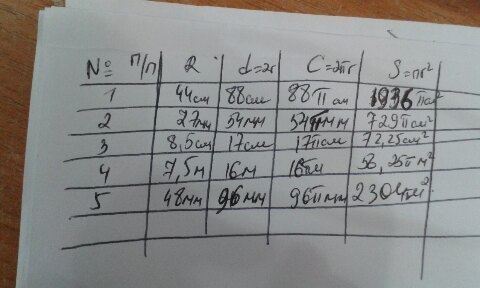 № п/п R d=2r C=2πr S=πr²
1 44см 88см 88π см 1936 π см²
2 27мм 54мм 54π мм 729π см²
3 8,5см 17см 17π см 72,25 см²
4 7,5м 16м 16π м 56,25π м²
5 48мм 96мм 96π мм 2304 м²